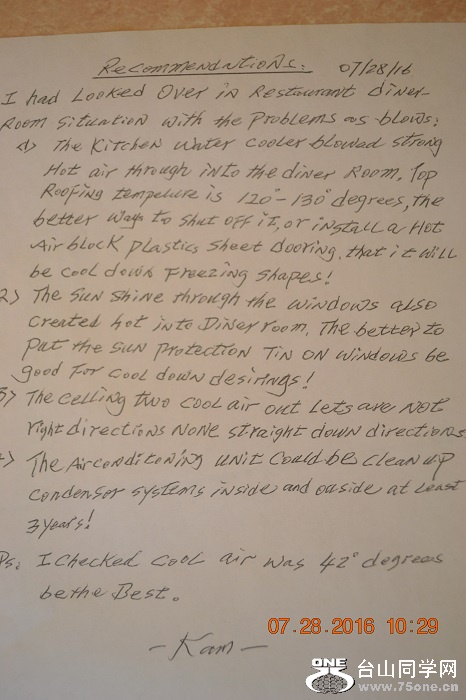 Recommendations. 07/28/16
I had Looked Over in Restaurant diner-
Room Situation with the Problems as blows:
1) The Kitchen Water Cooler blowed strong
Hot air through into the diner Room, Top
Roofing tempeture is 120°-130° degrees, the
better ways to shut off it, or install a Hot
Air block plastics sheet dooring, that it will
be cool down Freezing shapes!
2) The Sun shine through the windows also
created hot into Diner room. The better to
put the sun protection Tin on windows be
good For cool down desirings!
3) The celling two cool air out Lets are not
right directions None straight down directions
4) The Airconditoning unit could be clean up
condensor systems inside and ouside at least
3 years!
Ps: I checked cool air was 42° degrees
be the Best.
-Kam-
07.28.2016 10:29
ONE
台山同学网
www.75one.cn